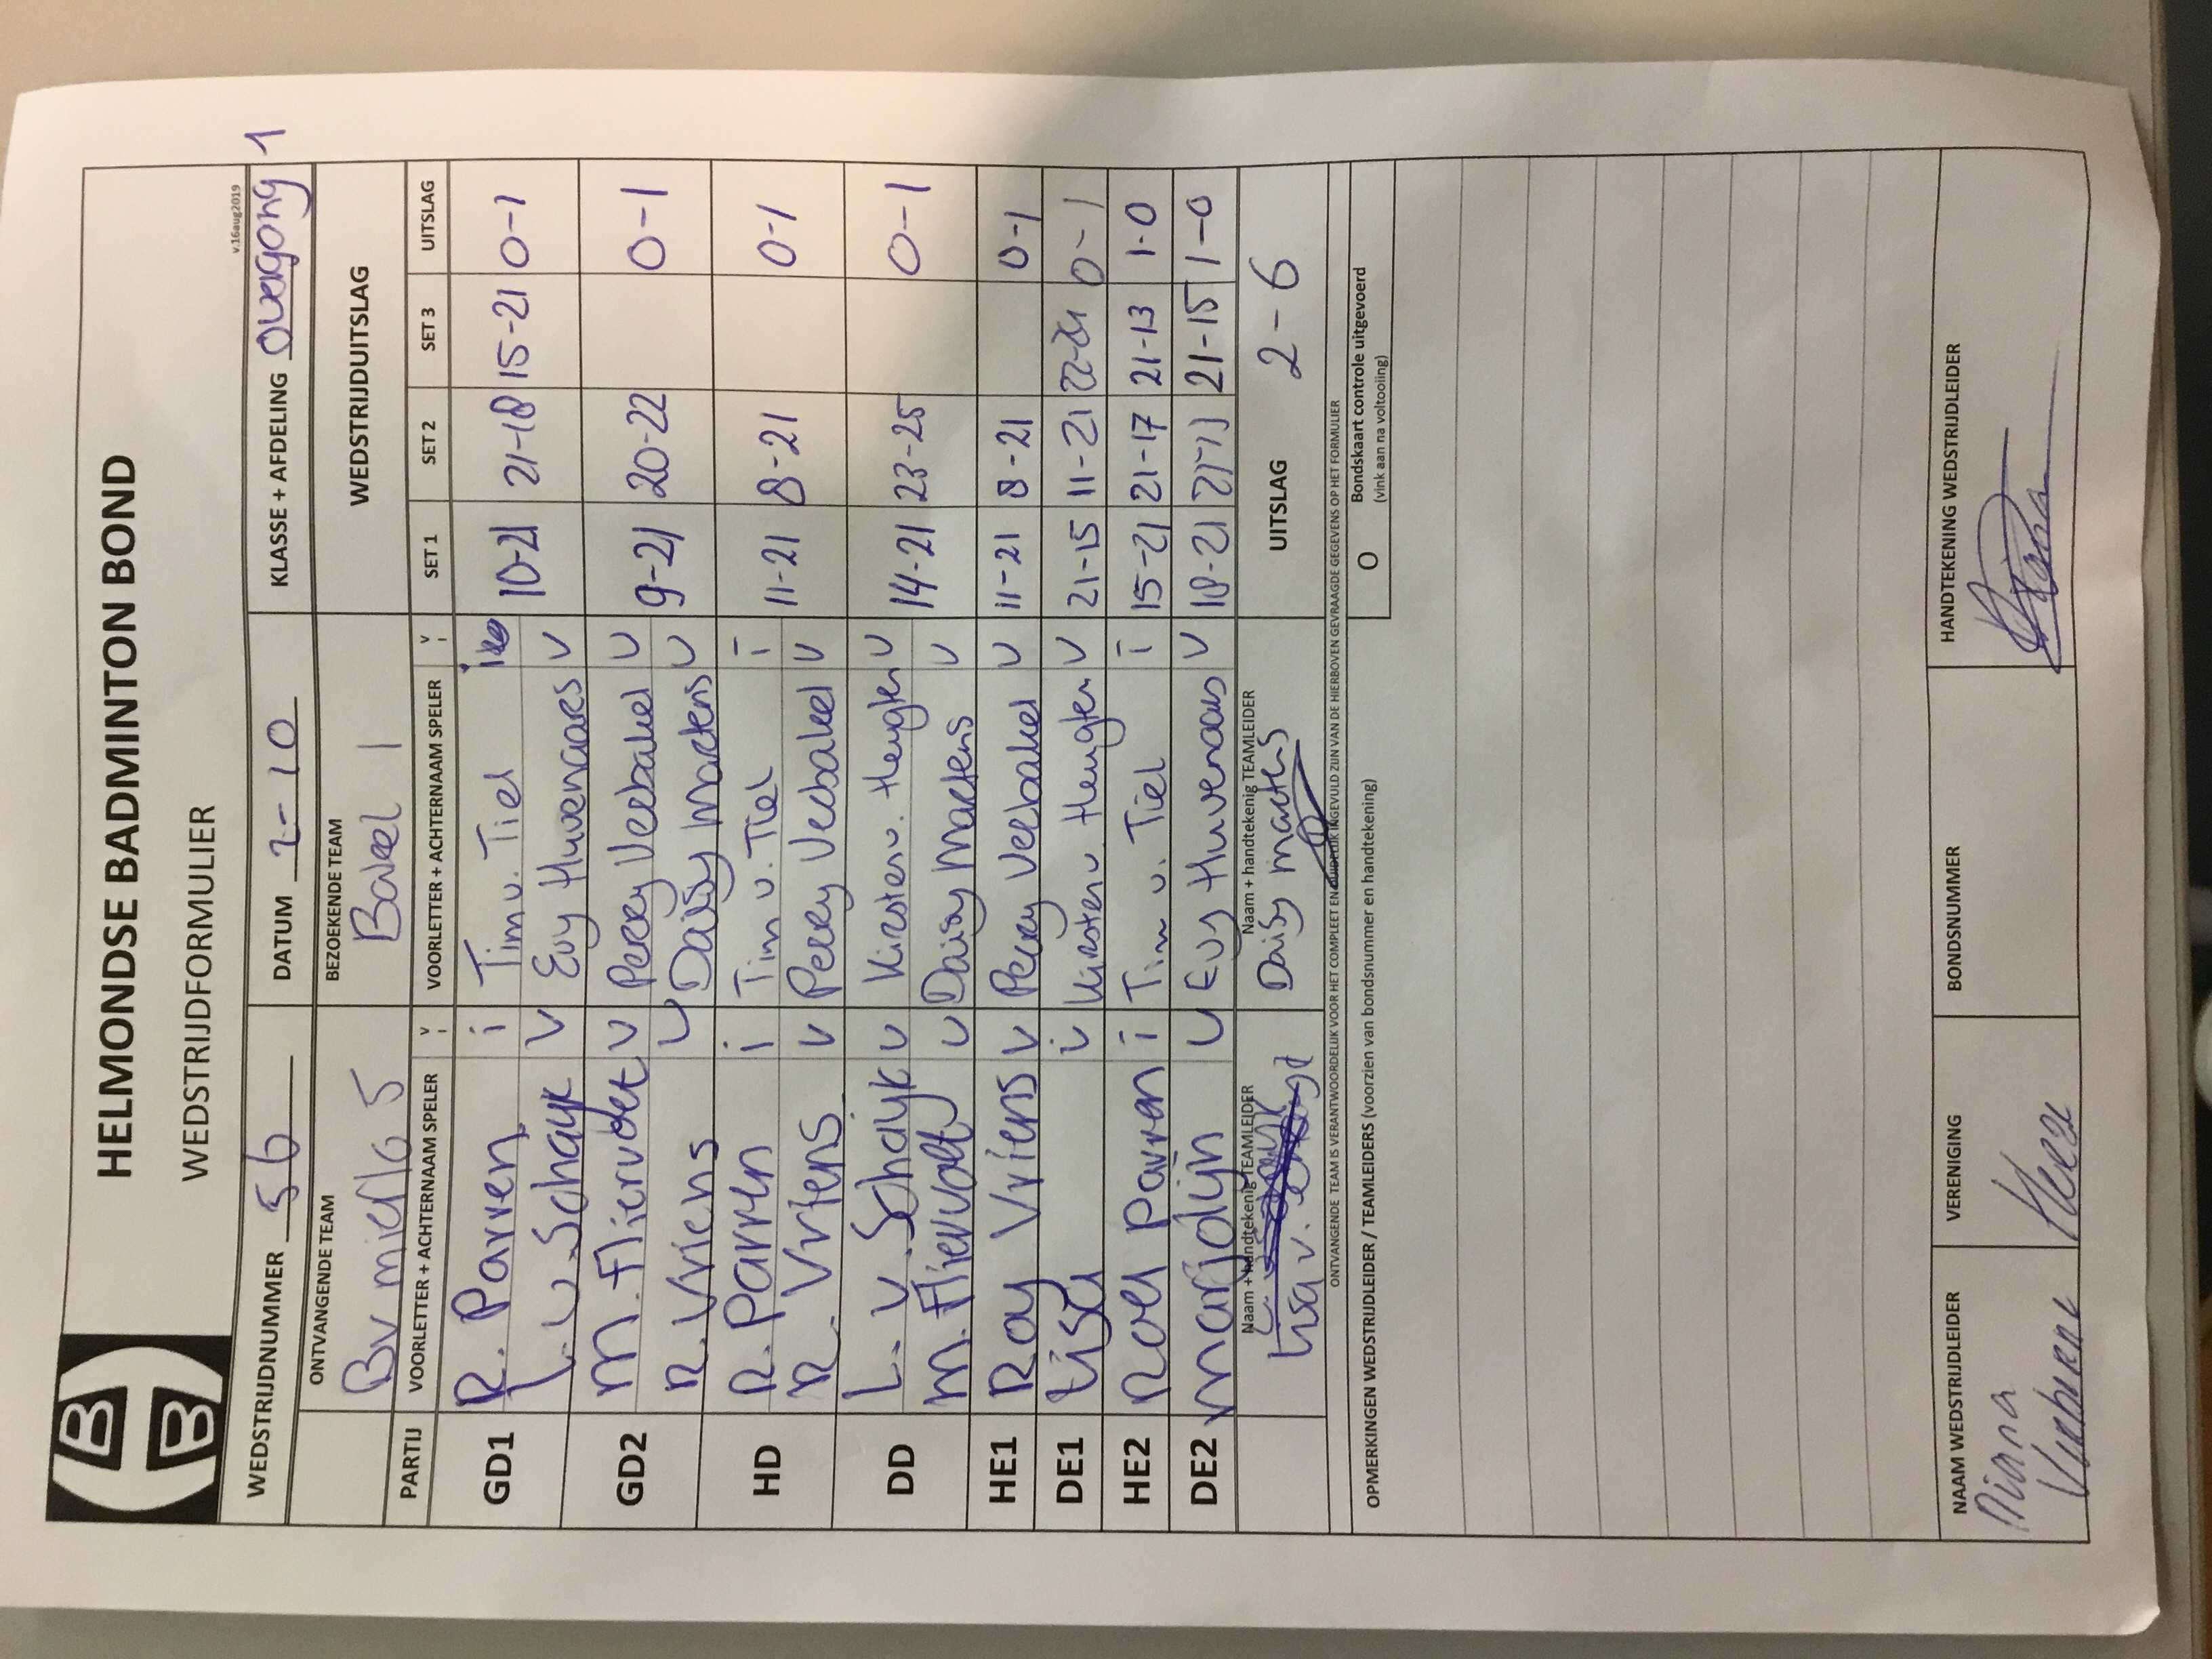 HELMONDSE BADMINTON BOND
WEDSTRIJDFORMULIER
v.16aug2019
WEDSTRIJDNUMMER 56 DATUM 2-10 KLASSE + AFDELING overgang 1
ONTVANGENDE TEAM BEZOEKENDE TEAM WEDSTRIJDUITSLAG
BV mierlo 5 Bakel 1
PARTIJ VOORLETTER + ACHTERNAAM SPELER V VOORLETTER + ACHTERNAAM SPELER V SET 1 SET 2 SET 3 UITSLAG
GD1 R. Parren i Tim v. Tiel 10-21 21-18 15-21 0-1
L. v. Schayk V Evy Huvenaars V
GD2 M. Fliervoet V Perry Verbakel V 9-21 20-22 0-1
R. Vriens V Daisy Martens V
HD R. Parren i Tim v. Tiel i 11-21 8-21 0-1
R. Vriens V Perry Verbakel V
DD L. v. Schayk V Kirsten v. Heugten V 14-21 23-25 0-1
M. Fliervoet V Daisy Martens V
HE1 Roy Vriens V Perry Verbakel V 11-21 8-21 0-1
DE1 Lisa Kirsten v. Heugten V 21-15 11-21 22-24 0-1
HE2 Roel Parren i Tim v. Tiel i 15-21 21-17 21-13 1-0
DE2 Marjolijn V Evy Huvenaars V 18-21 21-15 1-0
Naam + handtekenig TEAMLEIDER Naam + handtekenig TEAMLEIDER UITSLAG 2-6
Lisa v. Daisy Martens
ONTVANGENDE TEAM IS VERANTWOORDELIJK VOOR HET COMPLEET EN DUIDELIJK INGEVULD ZIJN VAN DE HIERBOVEN GEVRAAGDE GEGEVENS OP HET FORMULIER
OPMERKINGEN WEDSTRIJDLEIDER / TEAMLEIDERS (voorzien van bondsnummer en handtekening) O Bondskaart controle uitgevoerd
(vink aan na voltooiing)
NAAM WEDSTRIJDLEIDER VERENIGING BONDSNUMMER HANDTEKENING WEDSTRIJDLEIDER